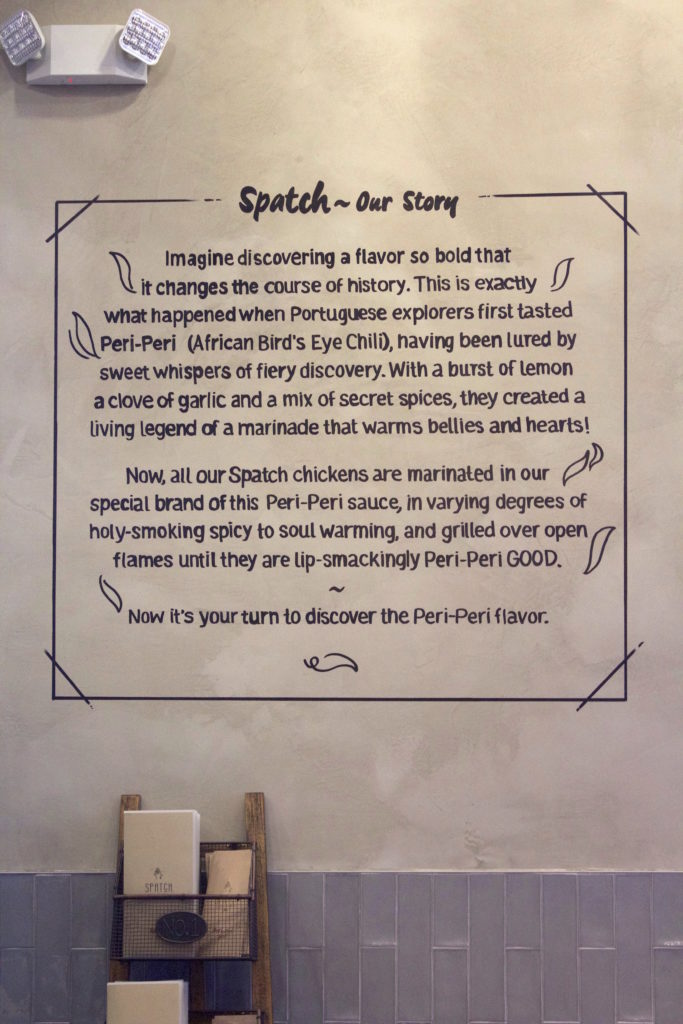 Spatch ~ Our Story
Imagine discovering a flavor so bold that
it changes the course of history. This is exactly
what happened when Portuguese explorers first tasted
Peri-Peri (African Bird's Eye Chili), having been lured by
sweet whispers of fiery discovery. With a burst of lemon
a clove of garlic and a mix of secret spices, they created a
living legend of a marinade that warms bellies and hearts!
Now, all our Spatch chickens are marinated in our
special brand of this Peri-Peri sauce, in varying degrees of
holy-smoking spicy to soul warming, and grilled over open
flames until they are lip-smackingly Peri-Peri GOOD.
~
Now it's your turn to discover the Peri-Peri flavor.
SPATCH
NO.1